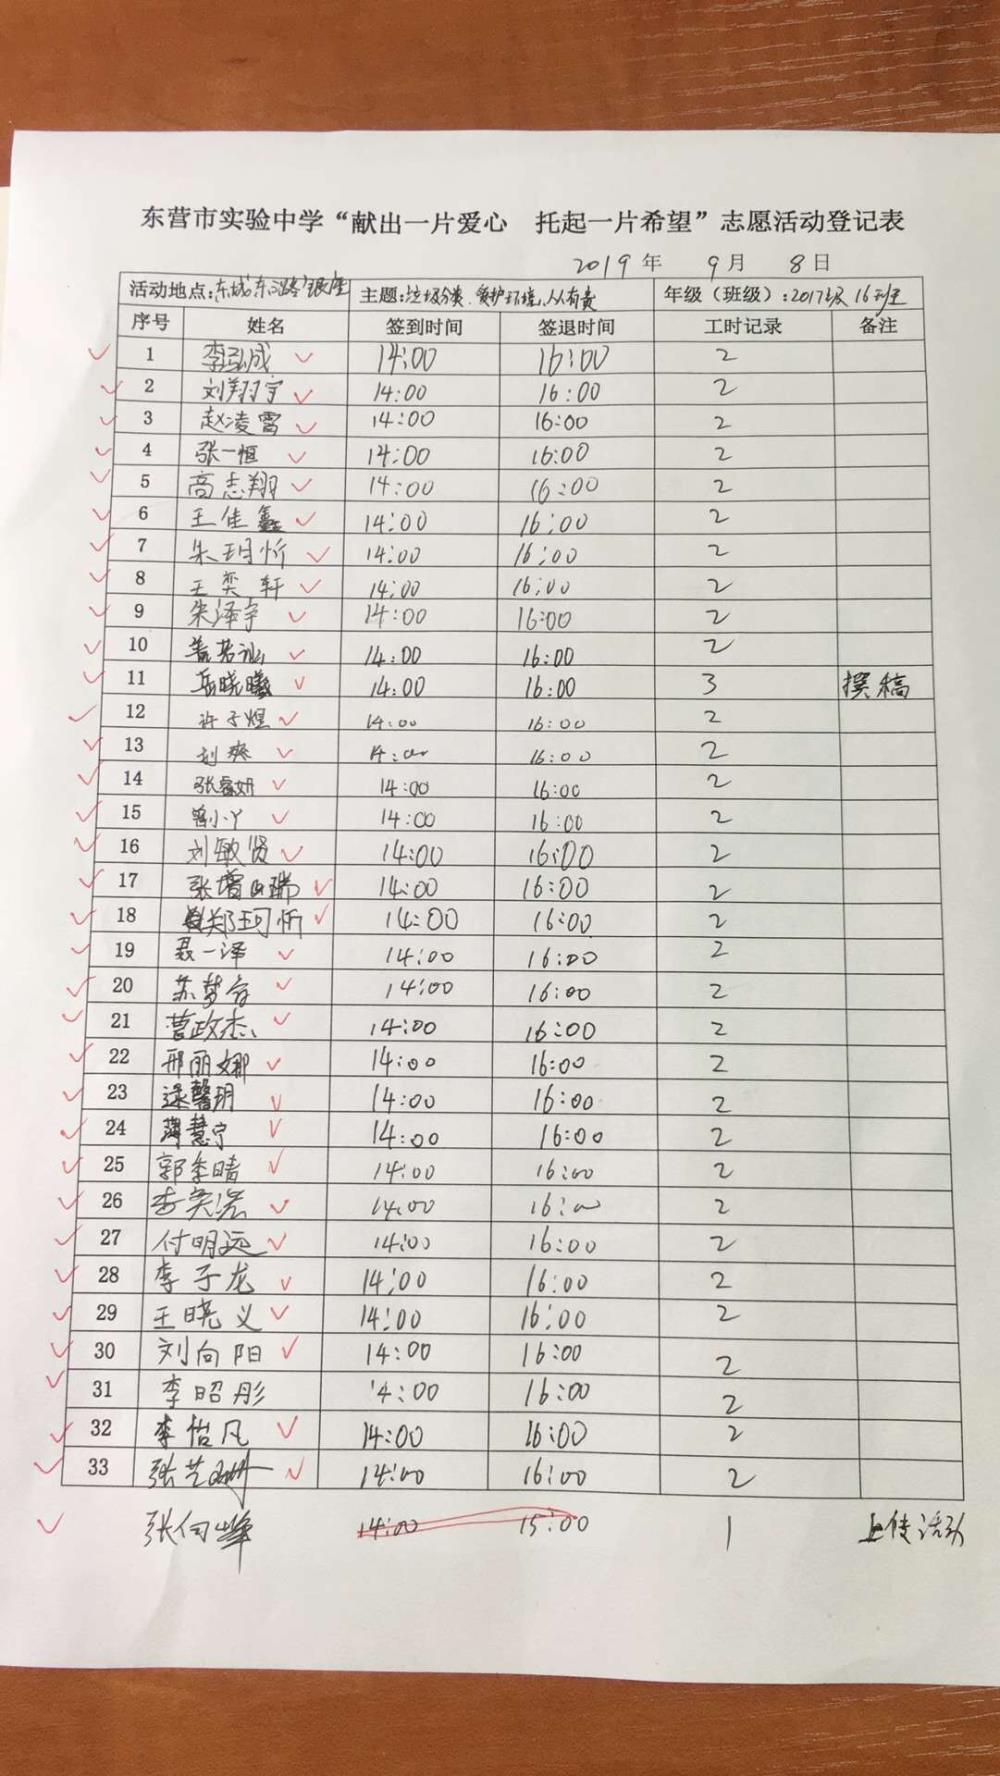 东营市实验中学“献出一片爱心 托起一片希望”志愿活动登记表
2019 年 9 月 8 日
活动地点:东城东三路银座 主题:垃圾分类,爱护环境,人人有责 年级（班级）:2017级16班
序号 姓名 签到时间 签退时间 工时记录 备注
1 李弘成 14:00 16:00 2
2 刘翔宇 14:00 16:00 2
3 赵凌霄 14:00 16:00 2
4 张一恒 14:00 16:00 2
5 高志翔 14:00 16:00 2
6 王佳鑫 14:00 16:00 2
7 朱玥忻 14:00 16:00 2
8 王奕轩 14:00 16:00 2
9 朱泽宇 14:00 16:00 2
10 14:00 16:00 2
11 岳晓曦 14:00 16:00 3 撰稿
12 许子煜 14:00 16:00 2
13 刘爽 14:00 16:00 2
14 张睿妍 14:00 16:00 2
15 曾小丫 14:00 16:00 2
16 刘敏贤 14:00 16:00 2
17 张增瑞 14:00 16:00 2
18 郑珂忻 14:00 16:00 2
19 聂一泽 14:00 16:00 2
20 苏梦 14:00 16:00 2
21 曹政杰 14:00 16:00 2
22 邢丽娜 14:00 16:00 2
23 逯馨玥 14:00 16:00 2
24 薄慧宁 14:00 16:00 2
25 郭季晴 14:00 16:00 2
26 李奕浩 14:00 16:00 2
27 付明远 14:00 16:00 2
28 李子龙 14:00 16:00 2
29 王晓义 14:00 16:00 2
30 刘向阳 14:00 16:00 2
31 李昭彤 14:00 16:00 2
32 李怡凡 14:00 16:00 2
33 张艺珊 14:00 16:00 2
张向峰 14:00 15:00 1 上传活动